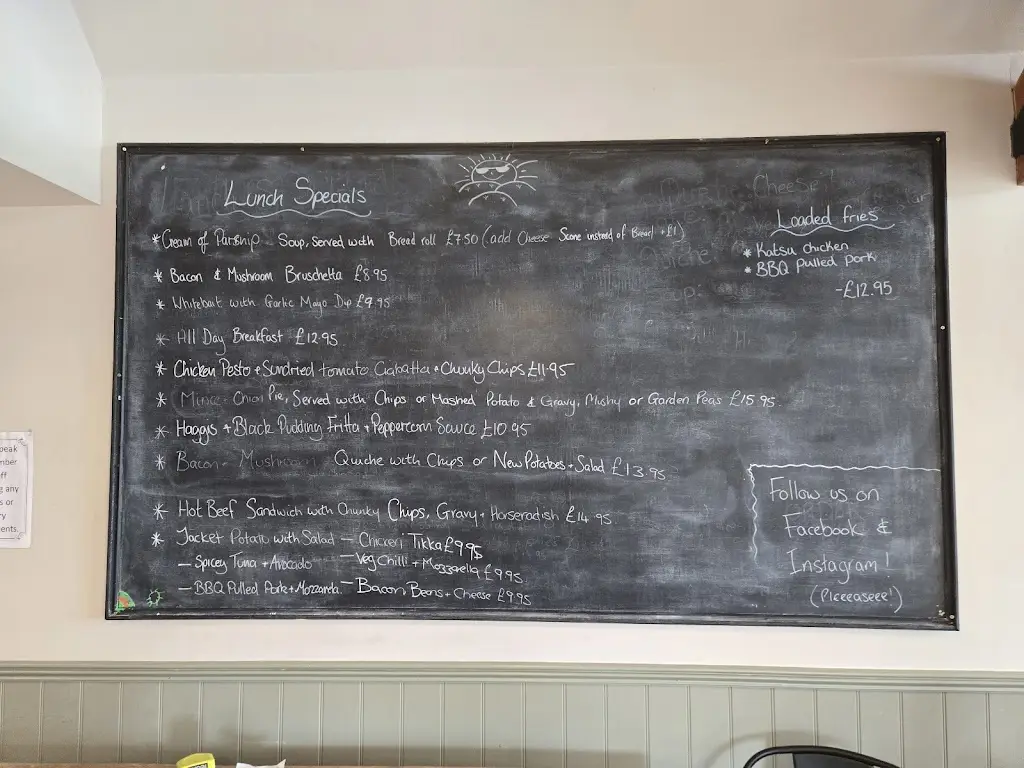 Lunch Specials
* Cream of Parsnip Soup, Served with Bread roll £7.50 (add Cheese Scone instead of Bread +£1)
* Bacon & Mushroom Bruschetta £8.95
* Whitebait with Garlic Mayo Dip £9.95
* All Day Breakfast £12.95
* Chicken Pesto + Sundried tomato Ciabatta + Chunky Chips £11.95
* Mince + Onion Pie, Served with Chips or Mashed Potato & Gravy, Mushy or Garden Peas £15.95
* Haggis + Black Pudding Fritta + Peppercorn Sauce £10.95
* Bacon + Mushroom Quiche with Chips or New Potatoes + Salad £13.95
* Hot Beef Sandwich with Chunky Chips, Gravy + Horseradish £14.95
* Jacket Potato with Salad - Chicken Tikka £9.95
- Spicey Tuna + Avocado - Veg Chilli + Mozzarella £9.95
- BBQ Pulled Pork + Mozzarella - Bacon Beans + Cheese £9.95
Cheese!
Quiche:
Loaded fries
* Katsu chicken
* BBQ pulled pork
- £12.95
Follow us on
Facebook &
Instagram!
(Pleeeaseee!)
peak
mber
ff
g any
s or
ry
ents.